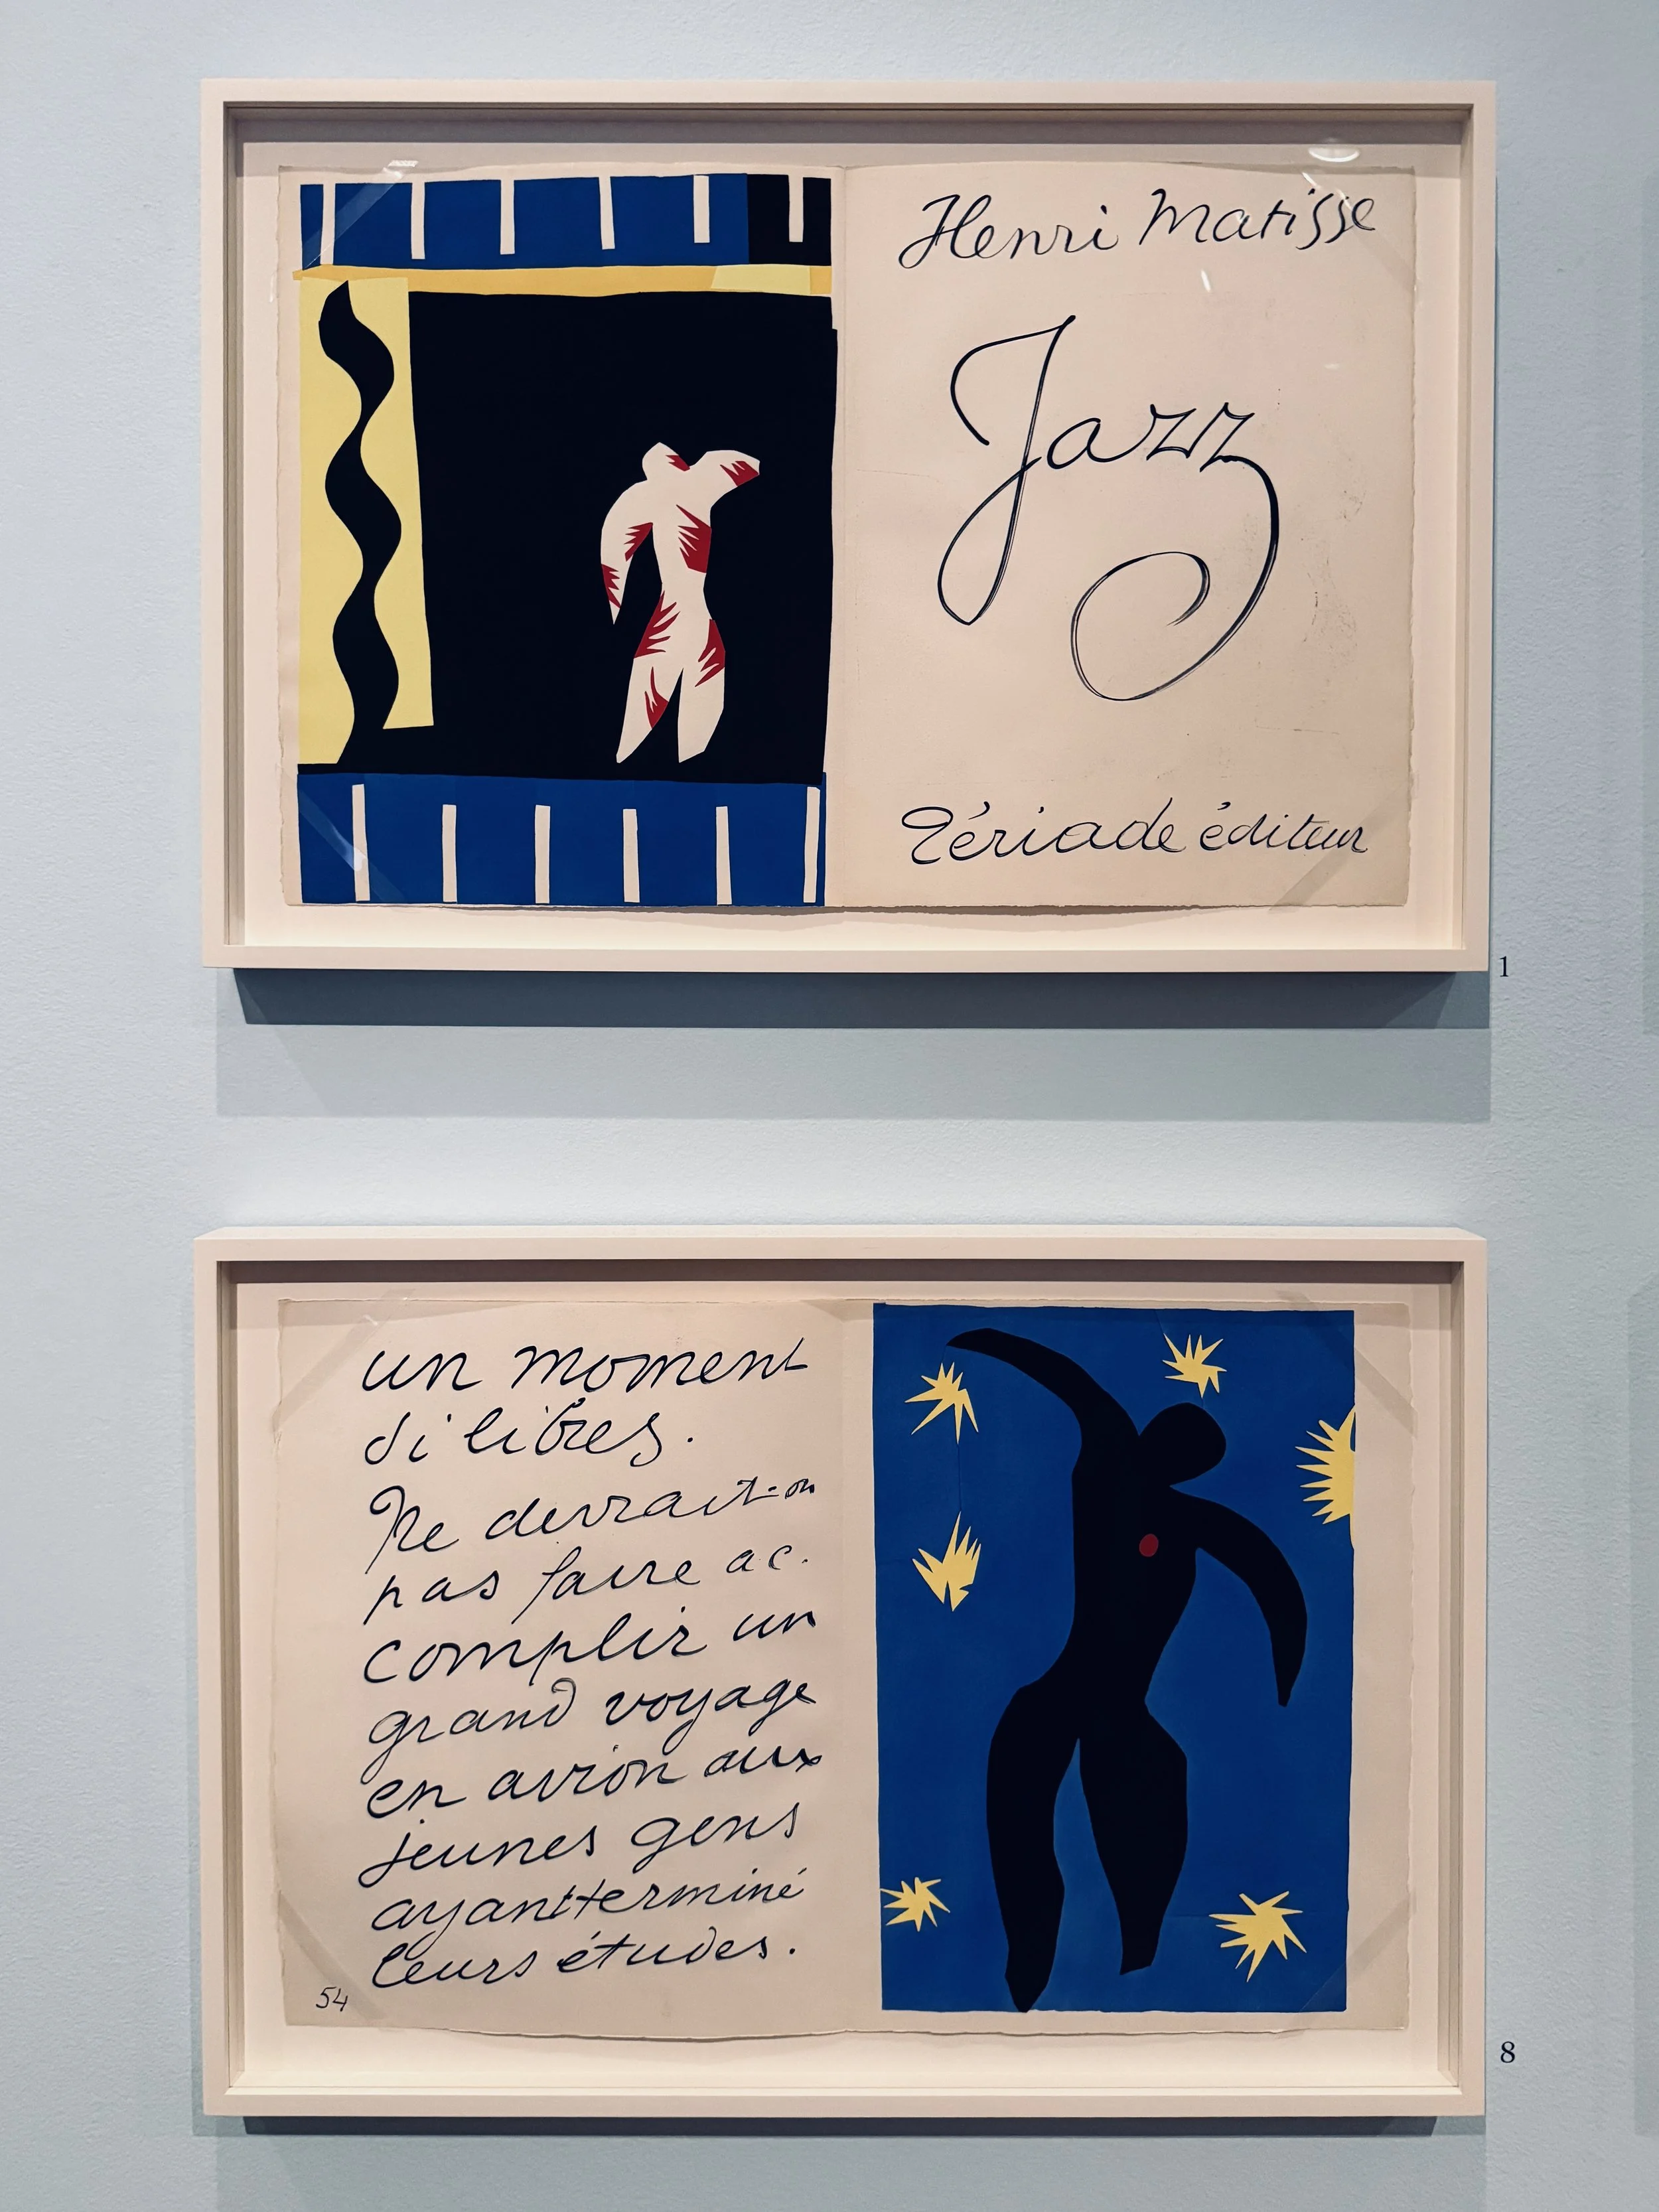 Henri Matisse
Jazz
Tériade éditeur
1
un moment
si libres.
Ne devrait-on
pas faire ac-
complir un
grand voyage
en avion aux
jeunes gens
ayant terminé
leurs études.
54
8